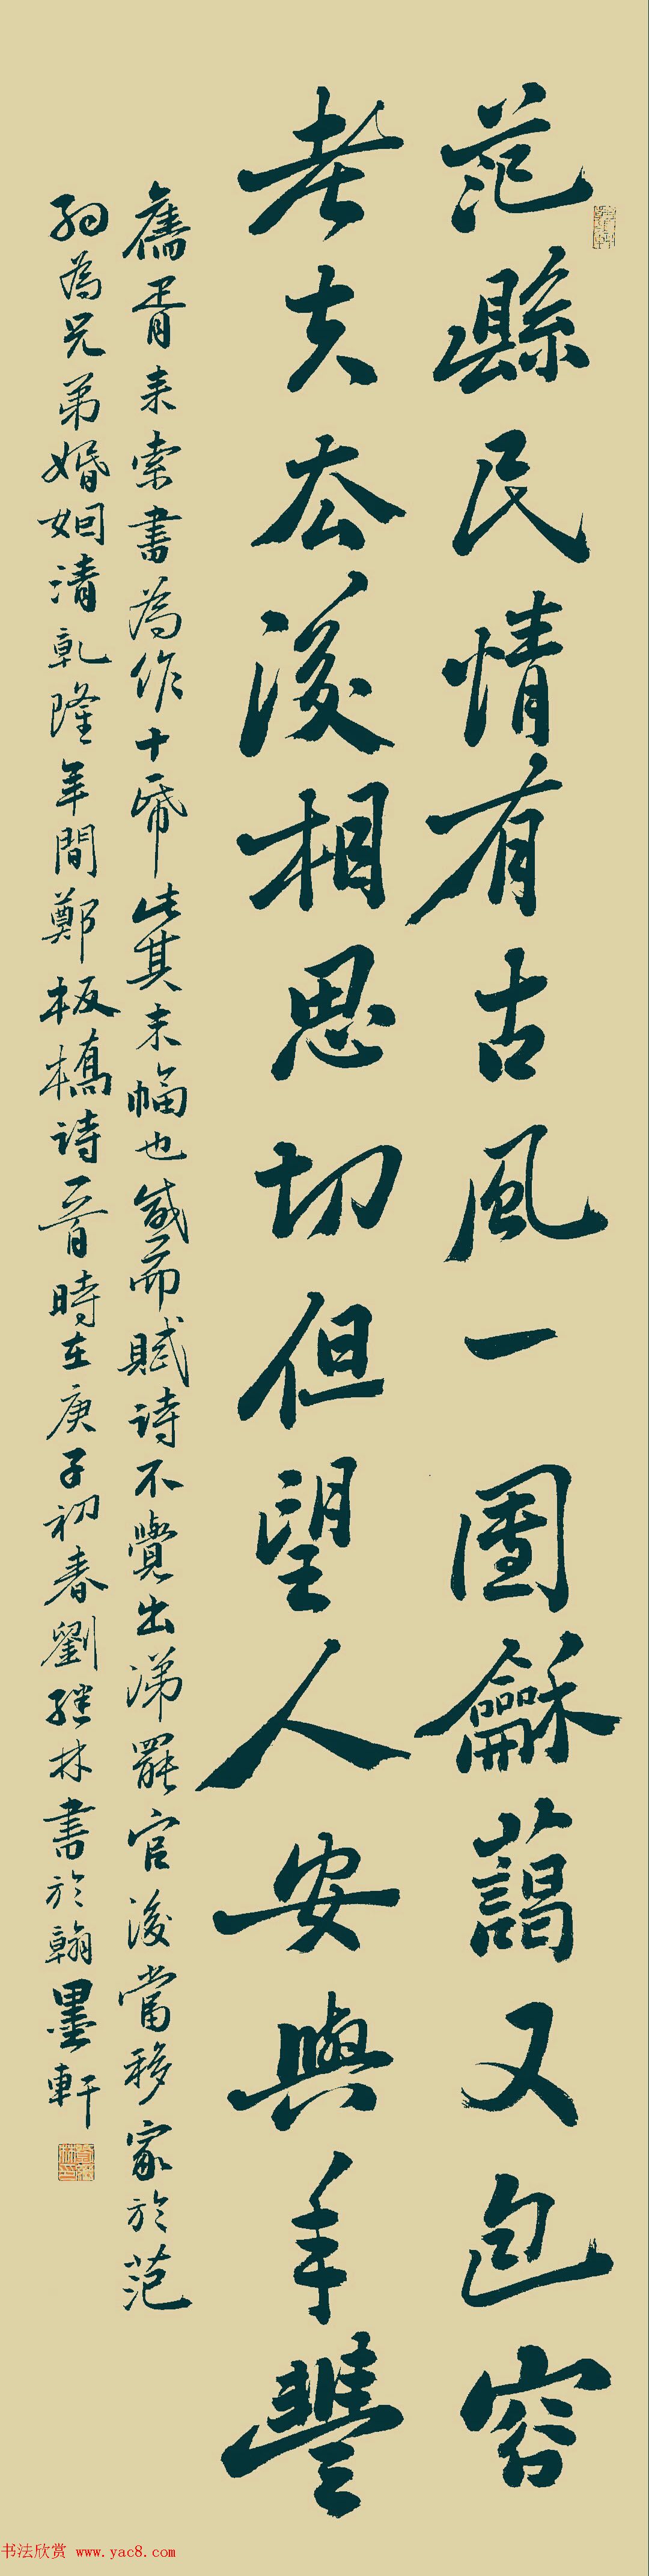 范縣民情有古風一團龢藹又包容
老夫去後相思切但望人安與年豐
舊胥来索書為作十帋此其末幅也感而賦詩不覺出涕罷官後當移家於范
約為兄弟婚姻清乾隆年間鄭板橋詩一首時在庚子初春劉继林書於翰墨軒
书法欣赏 www.yac8.com